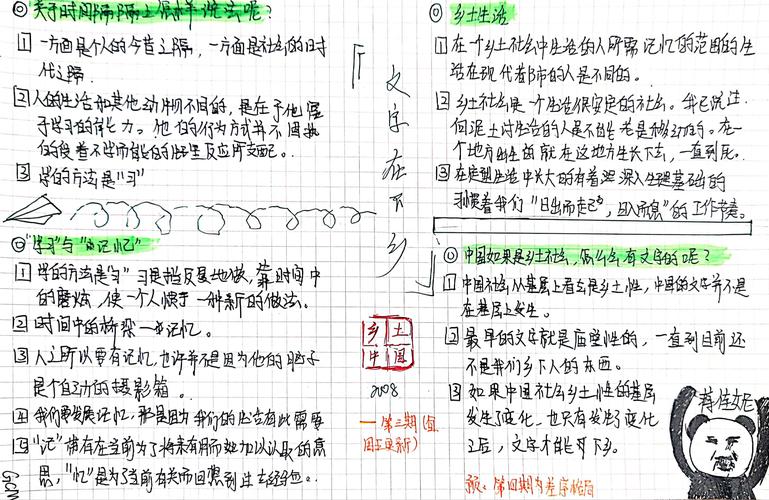 ◎ 关于时间隔隔上怎样说法呢？
1 一方面是个人的今昔之隔，一方面是社会的旧时
代之隔．
2 人的生活和其他动物不同的，是在于他富
于学习的能力。他的行为方式并不固执
的受着不学而能的生理反应所支配。
3 学的方法是“习”
◎“学习”与“的记忆”
1 学的方法是“习”习是指反复地做，靠时间中
的磨炼，使一个人惯于一种新的做法。
2 时间中的桥梁一步记忆。
3 人之所以要有记忆，也许并不是因为他的脑子
是个自动的摄影箱。
4 我们要发展记忆，那是因为我们的生活有此需要
5 “记”带有在当前为了将来有用而加以认取的意
思，“忆”是为了当前有关而回想到过去经验。
『文字在下乡』
乡土
中国
2008
一 第三期(
周五更新)
◎ 乡土生活
1 在一个乡土社会中生活的人所需记忆的范围的生
活在现代都市的人是不同的。
2 乡土社会是一个生活很安定的社会。我已说过，
向泥土讨生活的人是不能老是移动的。在一
个地方出生的就在这地方生长下去，一直到死。
3 在定型生活中长大的有着深入生理基础的
习惯着我们“日出而起，日入而息”的工作节奏。
◎ 中国如果是乡土社会，怎么会有文字的呢？
1 中国社会从基层上看去是乡土性，中国的文字并不是
在基层上发生。
2 最早的文字就是庙堂性的，一直到目前还
不是我们乡下人的东西。
3 如果中国社会乡土性的基层
发生了变化，也只有发生了变化
之后，文字才能下乡。
预：第四期为差序格局
蒋佳妮